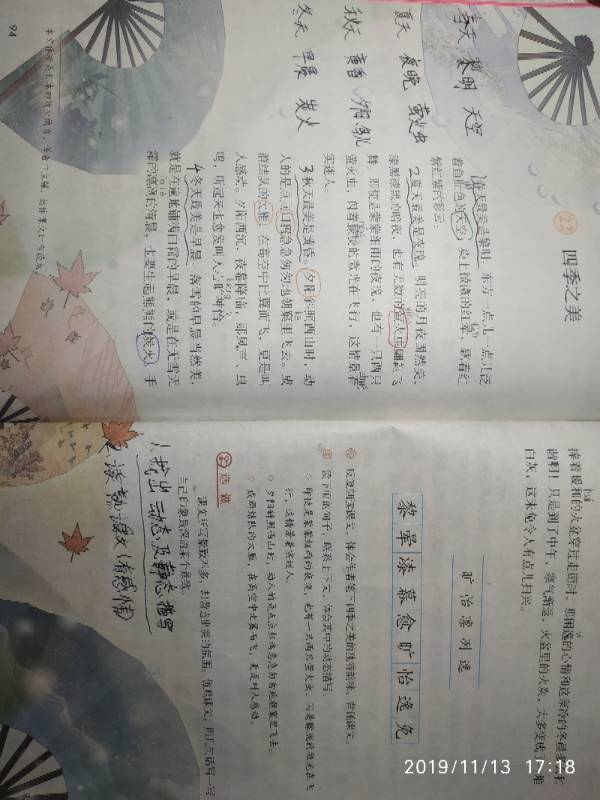 春天 黎明 天空
夏天 夜晚 萤火虫
秋天 黄昏 夕阳 鸟
冬天 早晨 炭火
22
四季之美
春天最美是黎明。东方一点儿一点儿泛
着鱼肚色的天空，染上微微的红晕，飘着红
紫红紫的彩云。
2 夏天最美是夜晚。明亮的月夜固然美，
漆黑漆黑的暗夜，也有无数的萤火虫翩翩飞
舞。即使是蒙蒙细雨的夜晚，也有一只两只
萤火虫，闪着朦胧的微光在飞行，这情景着
实迷人。
3 秋天最美是黄昏。夕阳斜照西山时，动
人的是点点归鸦急急匆匆地朝窠里飞去。成
群结队的大雁，在高空中比翼而飞，更是叫
人感动。夕阳西沉，夜幕降临，那风声、虫
鸣，听起来也愈发叫人心旷神怡。
4 冬天最美是早晨。落雪的早晨当然美，
就是在遍地铺满白霜的早晨，或是在无雪无
霜的凛冽的清晨，也要生起熊熊的炭火。手
94
捧着暖和的火盆穿过走廊时，那闲逸的心情和这寒冷的冬晨多么和
谐啊！只是到了中午，寒气渐退，火盆里的火炭，大多变成了一堆
白灰，这未免令人有点儿扫兴。
旷 怡 凛 冽 逸
黎 晕 漆 幕 愈 旷 怡 逸 免
朗读课文。体会作者笔下四季之美的独特韵味。背诵课文。
读下面的句子，联系上下文，体会其中的动态描写。
◇ 即使是蒙蒙细雨的夜晚，也有一只两只萤火虫，闪着朦胧的微光在飞
行，这情景着实迷人。
◇ 夕阳斜照西山时，动人的是点点归鸦急急匆匆地朝窠里飞去。
◇ 成群结队的大雁，在高空中比翼而飞，更是叫人感动。
选做
自己印象最深的某个景致。
1、找出动态及静态描写
2、读熟课文（有感情）
2019/11/13 17:18